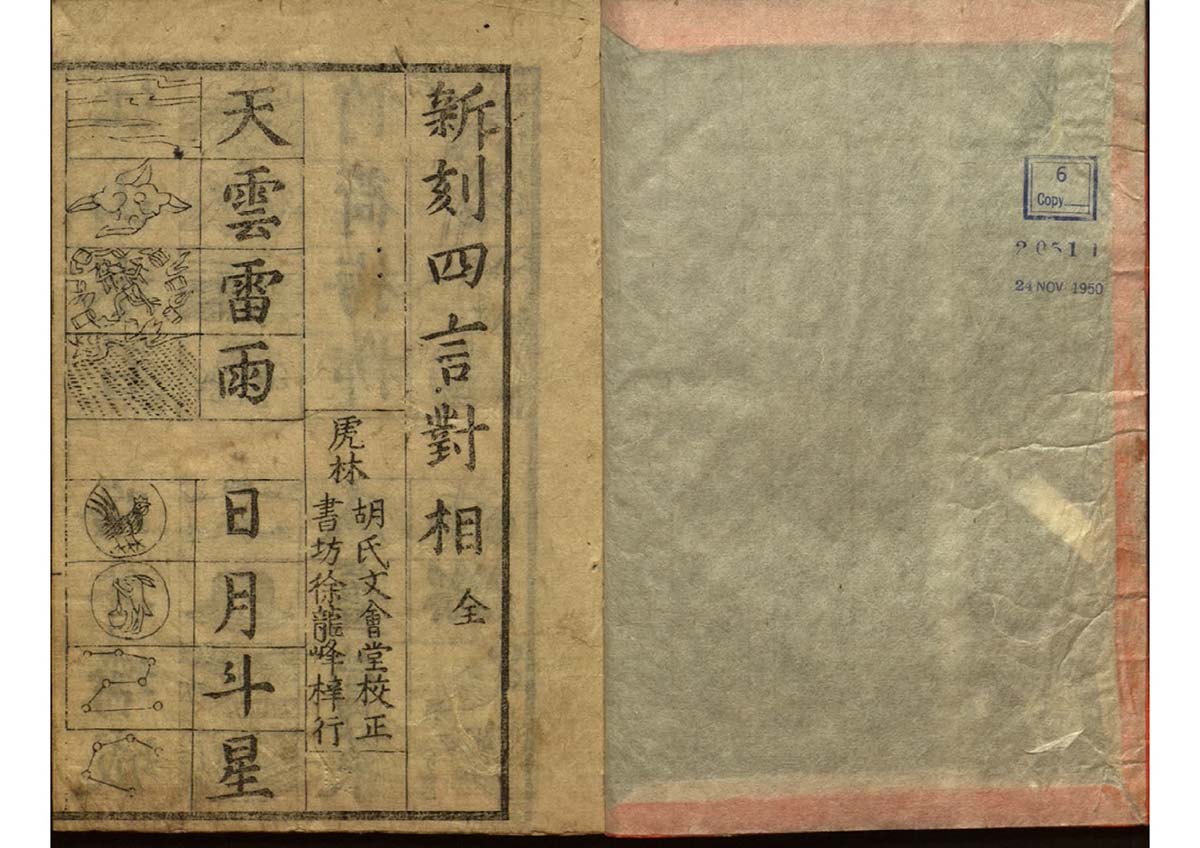 6
Copy
24 NOV 1950
新刻四言對相 全
虎林
胡氏文會堂校正
書坊徐龍峰梓行
天雲雷雨
日月斗星